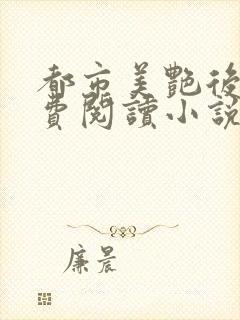 都市美艷後
費閱讀小說
廉晨